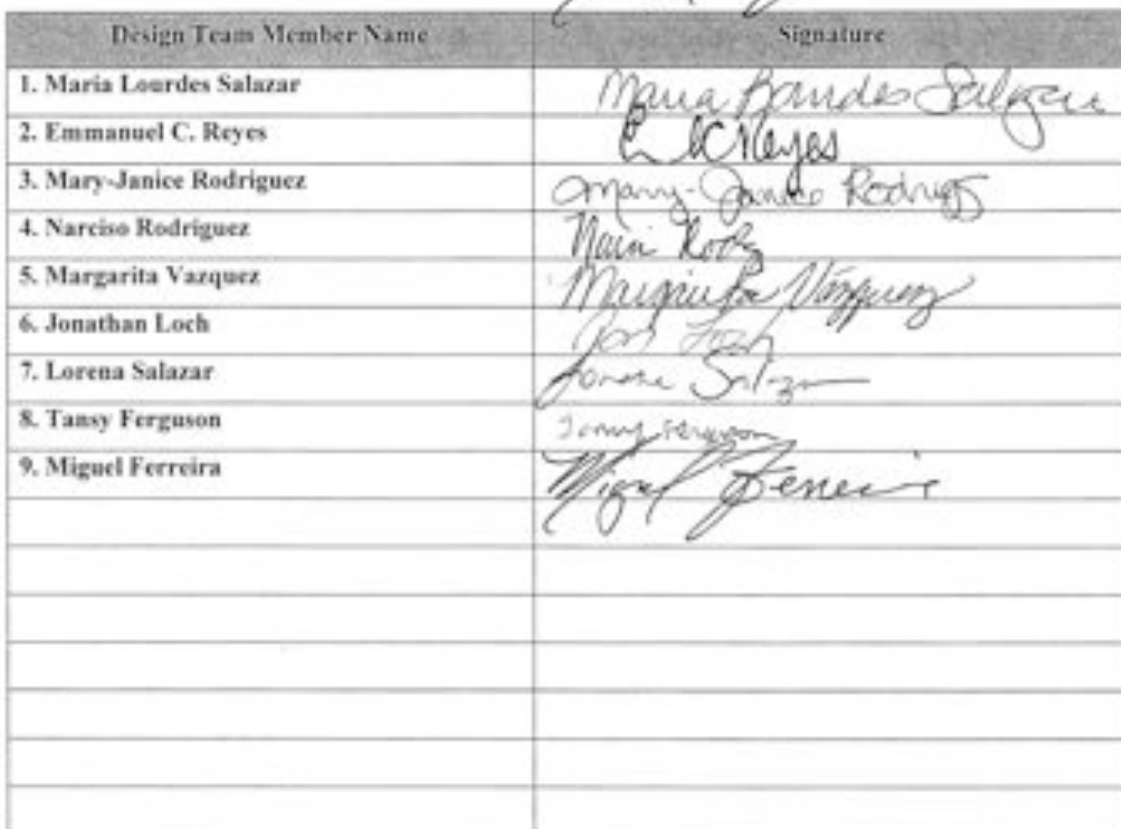 Design Team Member Name Signature
1. Maria Lourdes Salazar Maria Lourdes Salazar
2. Emmanuel C. Reyes E C Reyes
3. Mary-Janice Rodriguez Mary-Janice Rodrig
4. Narciso Rodriguez
5. Margarita Vazquez Margarita Vázquez
6. Jonathan Loch Jon Loch
7. Lorena Salazar Lorena Salazar
8. Tansy Ferguson Tansy Ferguson
9. Miguel Ferreira Miguel Ferreira